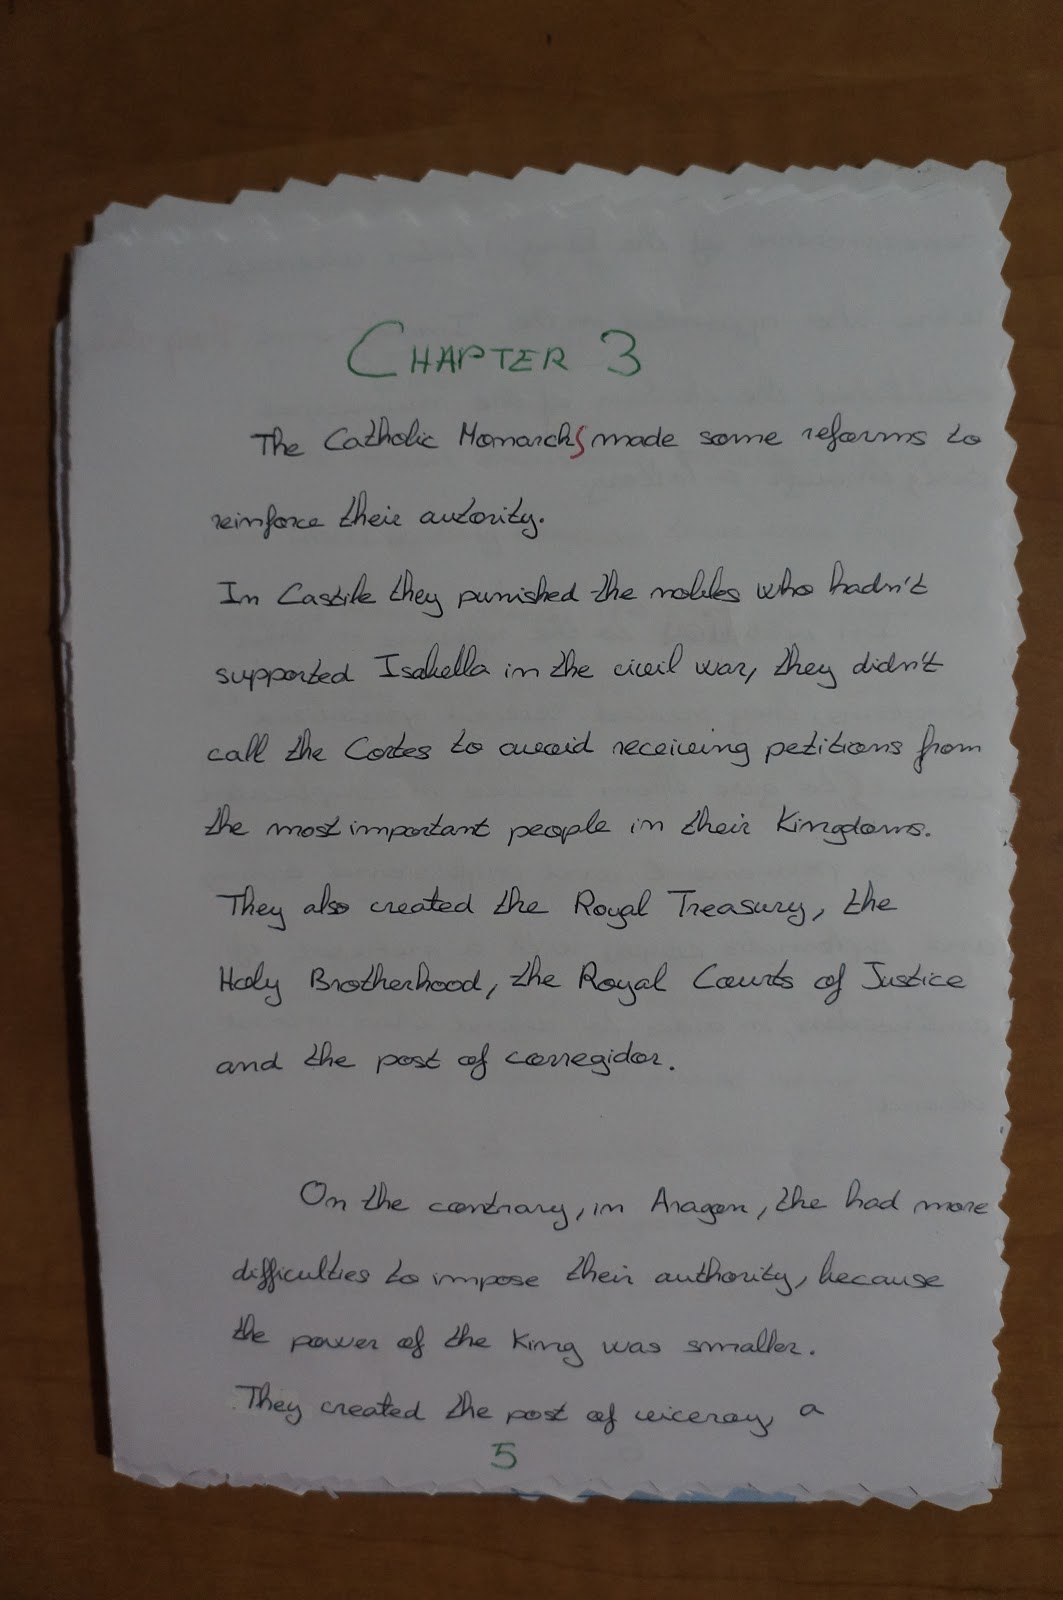 CHAPTER 3
The Catholic Monarchs made some reforms to
reinforce their autority.
In Castile they punished the nobles who hadn't
supported Isabella in the civil war, they didn't
call the Cortes to avoid receiving petitions from
the most important people in their Kingdoms.
They also created the Royal Treasury, the
Holy Brotherhood, the Royal Courts of Justice
and the post of corregidor.
On the contrary, in Aragon, the had more
difficulties to impose their authority, because
the power of the King was smaller.
They created the post of viceroy, a
5